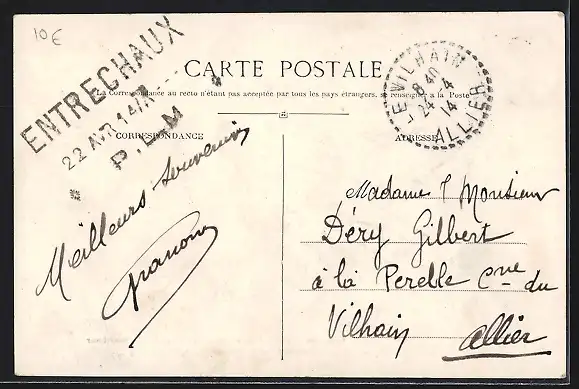 10€
ENTRECHAUX
22 AVR 14
P.L.M
CARTE POSTALE
La Correspondance au recto n'étant pas acceptée par tous les pays étrangers, se renseigner à la Poste
LE VILHAIN
8 40
24 -4
14
ALLIER
CORRESPONDANCE
ADRESSE
Meilleurs Souvenirs
Madame & Monsieur
Déry Gilbert
à la Perelle Cne du
Vilhain Allier